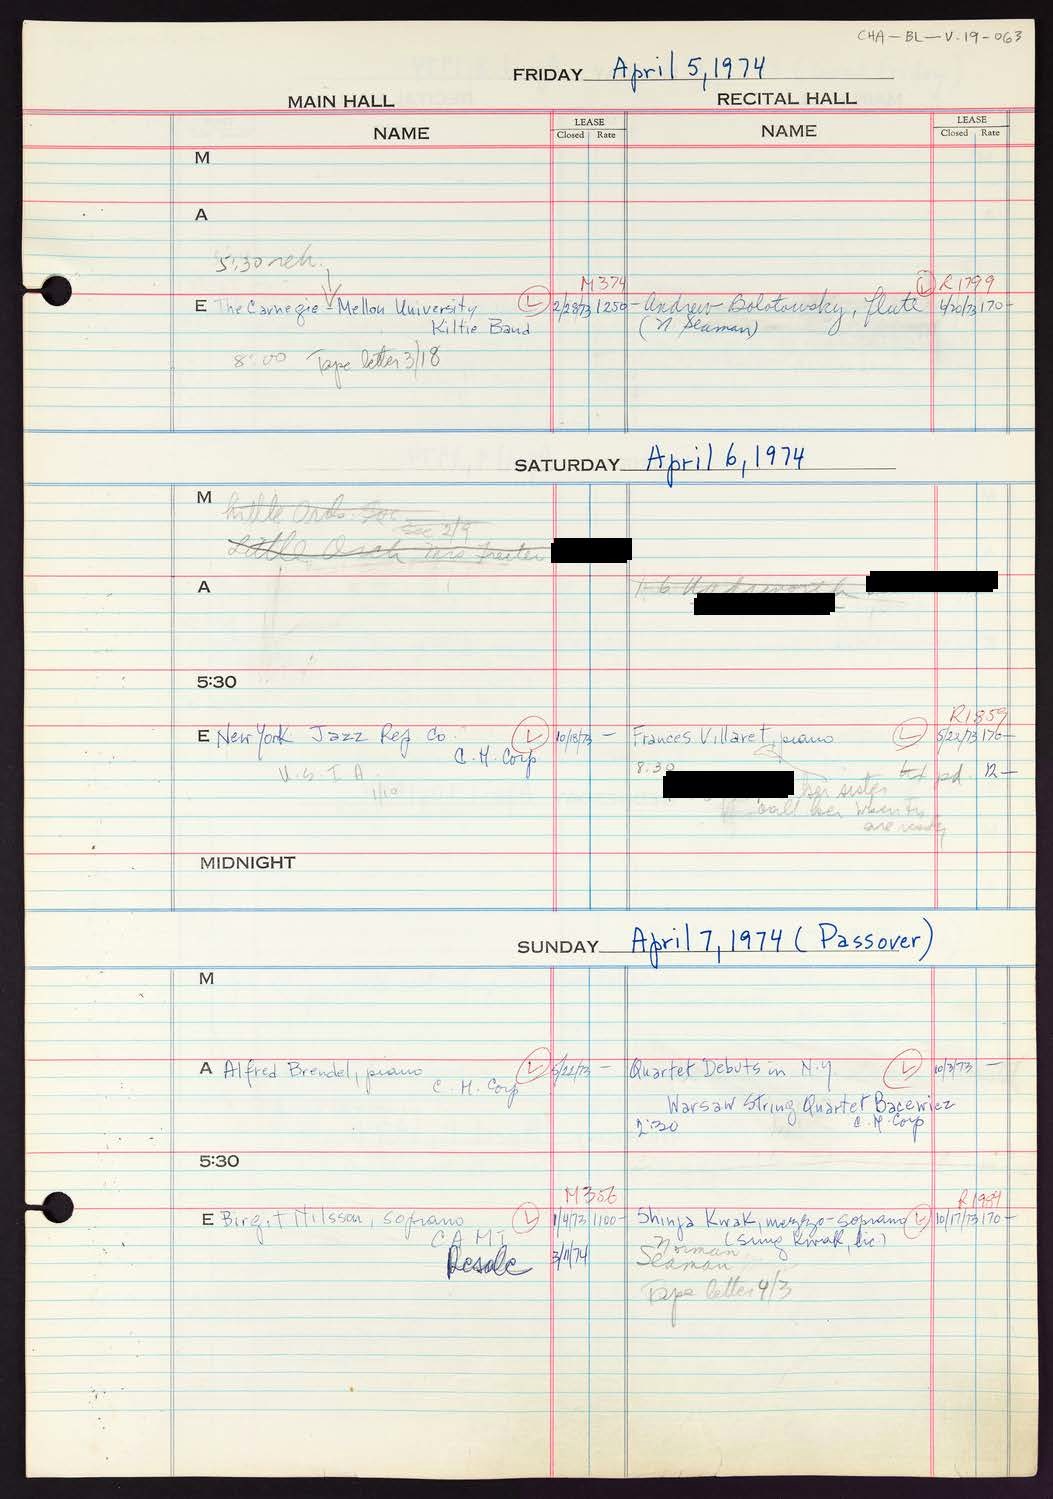 CHA-BL-V.19-063
FRIDAY April 5, 1974
MAIN HALL
RECITAL HALL
NAME
LEASE
Closed Rate
NAME
LEASE
Closed Rate
M
A
5:30 reh.
M374
R1799
E The Carnegie-Mellon University L 2/28/73 1250-
Kiltie Band
Andrew Bolotowsky, flute L 4/20/73 170-
(N Seaman)
8:00 Tape letter 3/18
SATURDAY April 6, 1974
M Little Orch. Soc
see 2/9
Little Orch
A
1-6
5:30
R1859
E New York Jazz Rep Co. L 10/18/73 -
C.H. Corp
Frances Villaret, piano L 5/22/73 170-
U.S.I.A.
1/10
8:30
pd. 12-
her sister
call her when
are ready
MIDNIGHT
SUNDAY April 7, 1974 (Passover)
M
A Alfred Brendel, piano L 5/22/73 -
C.H. Corp
Quartet Debuts in N.Y L 10/3/73 -
Warsaw String Quartet Bacewicz
2:30 C.H. Corp
5:30
M356
R1984
E Birgit Nilsson, soprano L 1/4/73 1100-
CAMI
Resale 3/11/74
Shinja Kwak, mezzo-soprano L 10/17/73 170-
(Sung Kwak, lic)
Norman
Seaman
Tape letter 4/3